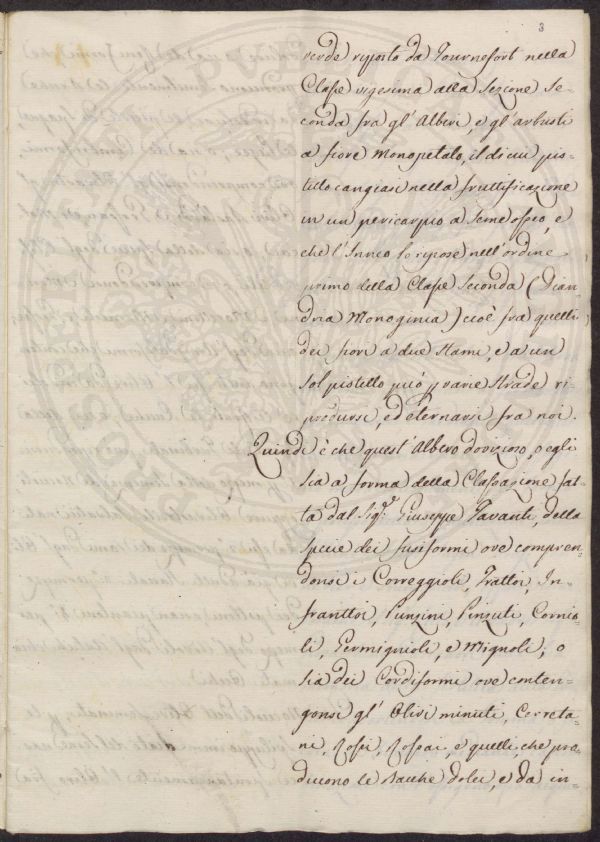 3
verde riposto da Tournefort nella
Classe vigesima alla Sezione Se-
conda fra gl'Alberi, e gl'arbusti
a fiore Monopetalo, il di cui pis-
tillo cangiasi nella fruttificazione
in un pericarpio a Seme osseo, e
che l'Inneo lo ripose nell'ordine
primo della Classe Seconda (Dian
dria Monoginia) cioè fra quelli
dei fiori a due Stami, e a un
sol pistillo può p varie Strade ri-
prodursi, ed eternarsi fra noi.
Quindi è che quest'Albero dovizioso, o egli
sia a forma della Classazione fat-
ta dal Sigr. Giuseppe Tavanti, della
specie dei fusiformi ove compren-
donsi i Correggioli, Frattoi, In-
franttoi, Punzini, Pinzuti, Cornio-
li, Permignioli, e Mignoli; o
sia dei Cordiformi ove conten-
gonsi gl'Olivi minuti, Correta-
ni, Rossi, Rossai, e quelli, che pro
ducono le Bacche dolci, e da in-